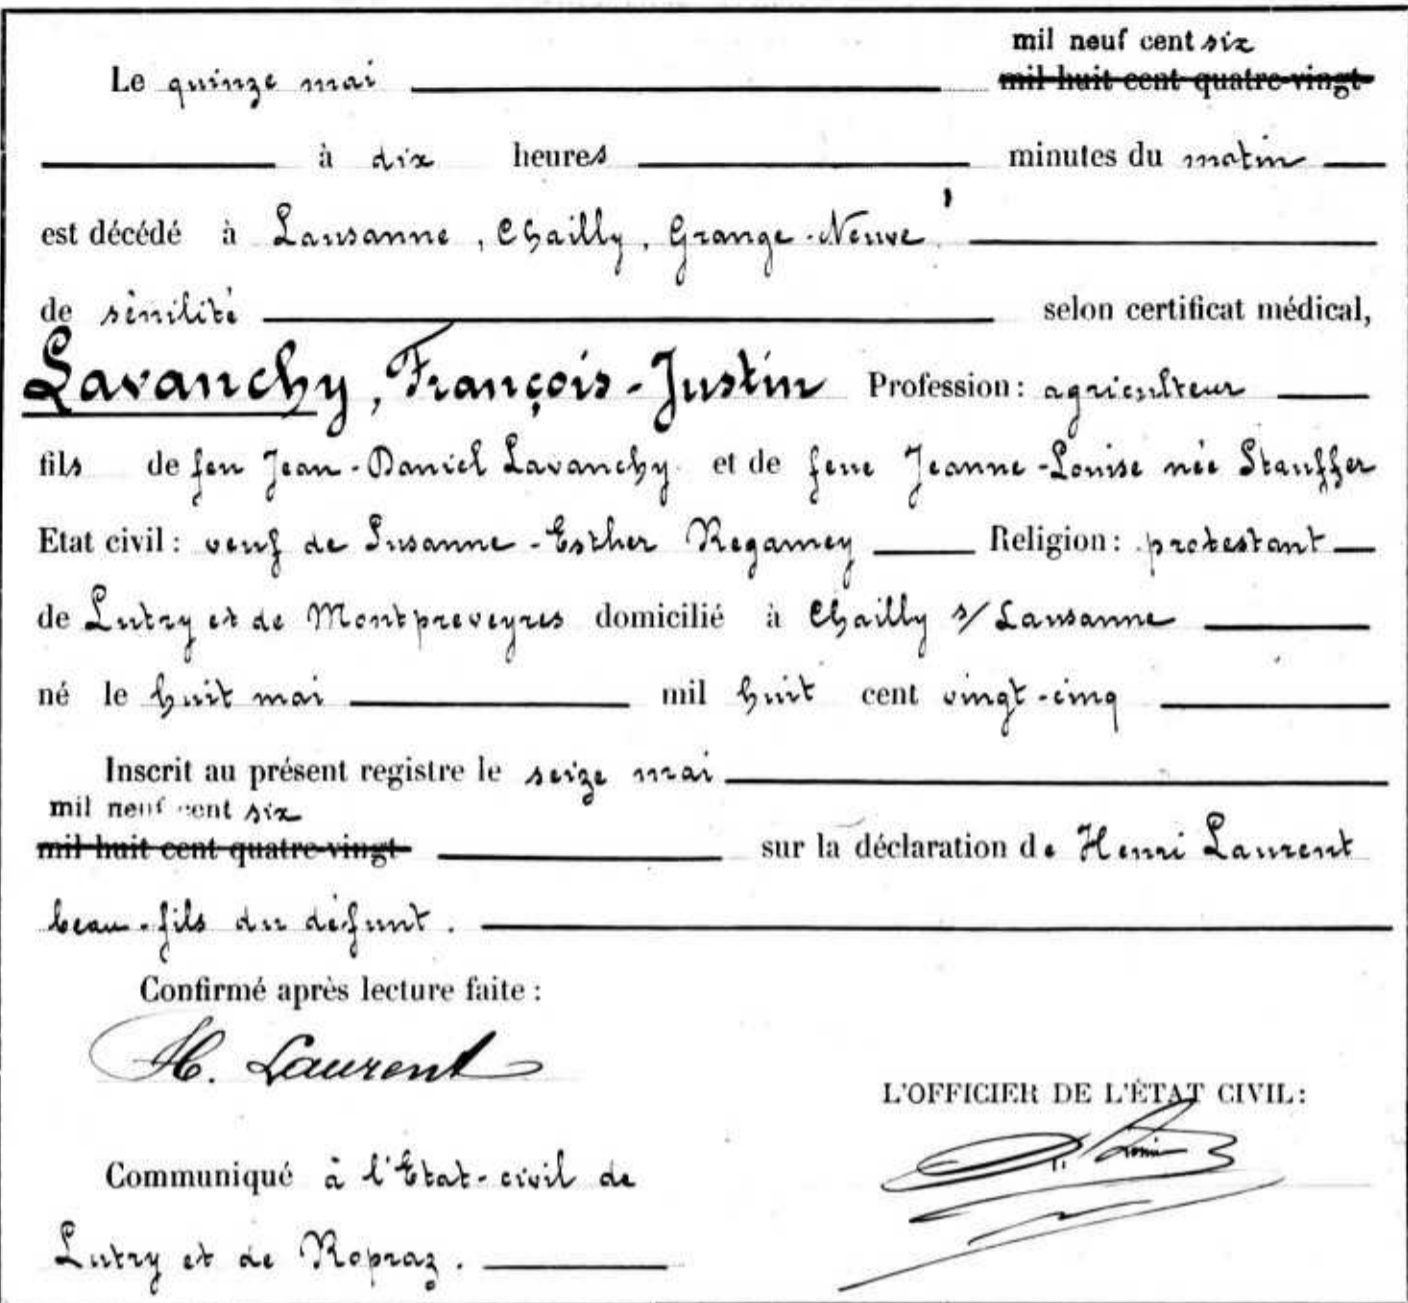 mil neuf cent six
Le quinze mai mil huit cent quatre-vingt
à dix heures minutes du matin
est décédé à Lausanne, Chailly, Grange-Neuve
de sénilité selon certificat médical,
Lavanchy, François-Justin Profession: agriculteur
fils de feu Jean-Daniel Lavanchy et de feue Jeanne-Louise née Stauffer
Etat civil: veuf de Susanne-Esther Regamey Religion: protestant
de Lutry et de Montpreveyres domicilié à Chailly s/Lausanne
né le huit mai mil huit cent vingt-cinq
Inscrit au présent registre le seize mai
mil neuf cent six
mil huit cent quatre-vingt sur la déclaration de Henri Laurent
beau-fils du défunt.
Confirmé après lecture faite:
H. Laurent
L'OFFICIER DE L'ÉTAT CIVIL:
Communiqué à l'Etat-civil de
Lutry et de Ropraz.